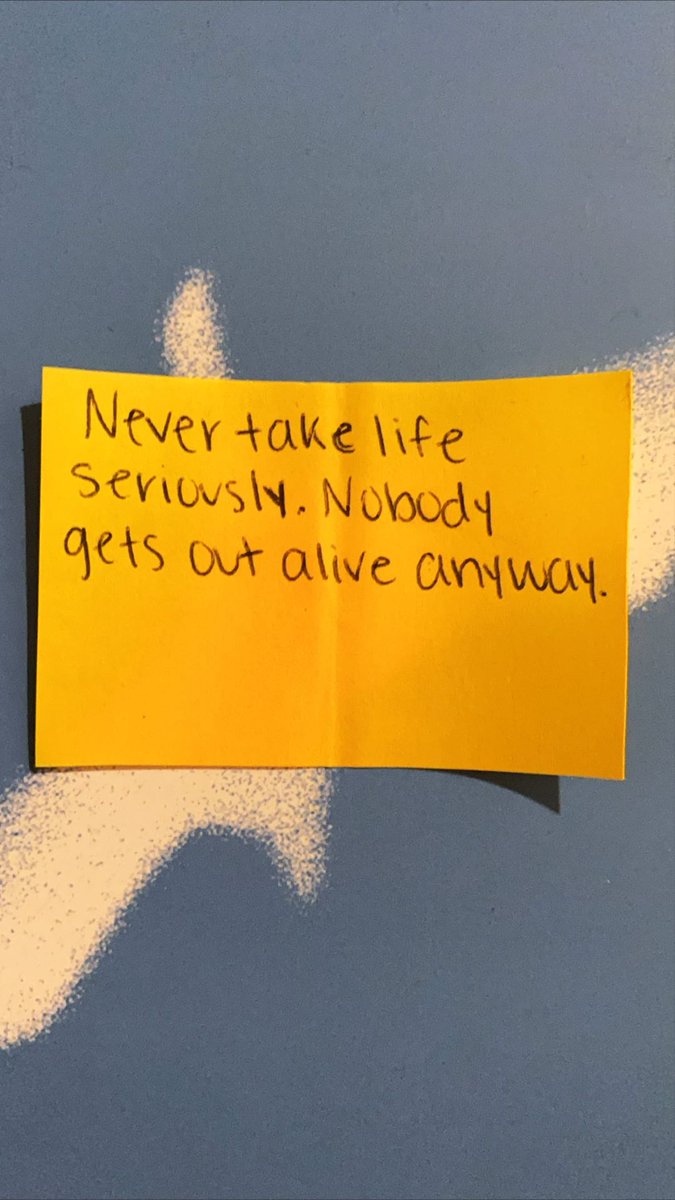 Never take life
seriously. Nobody
gets out alive anyway.